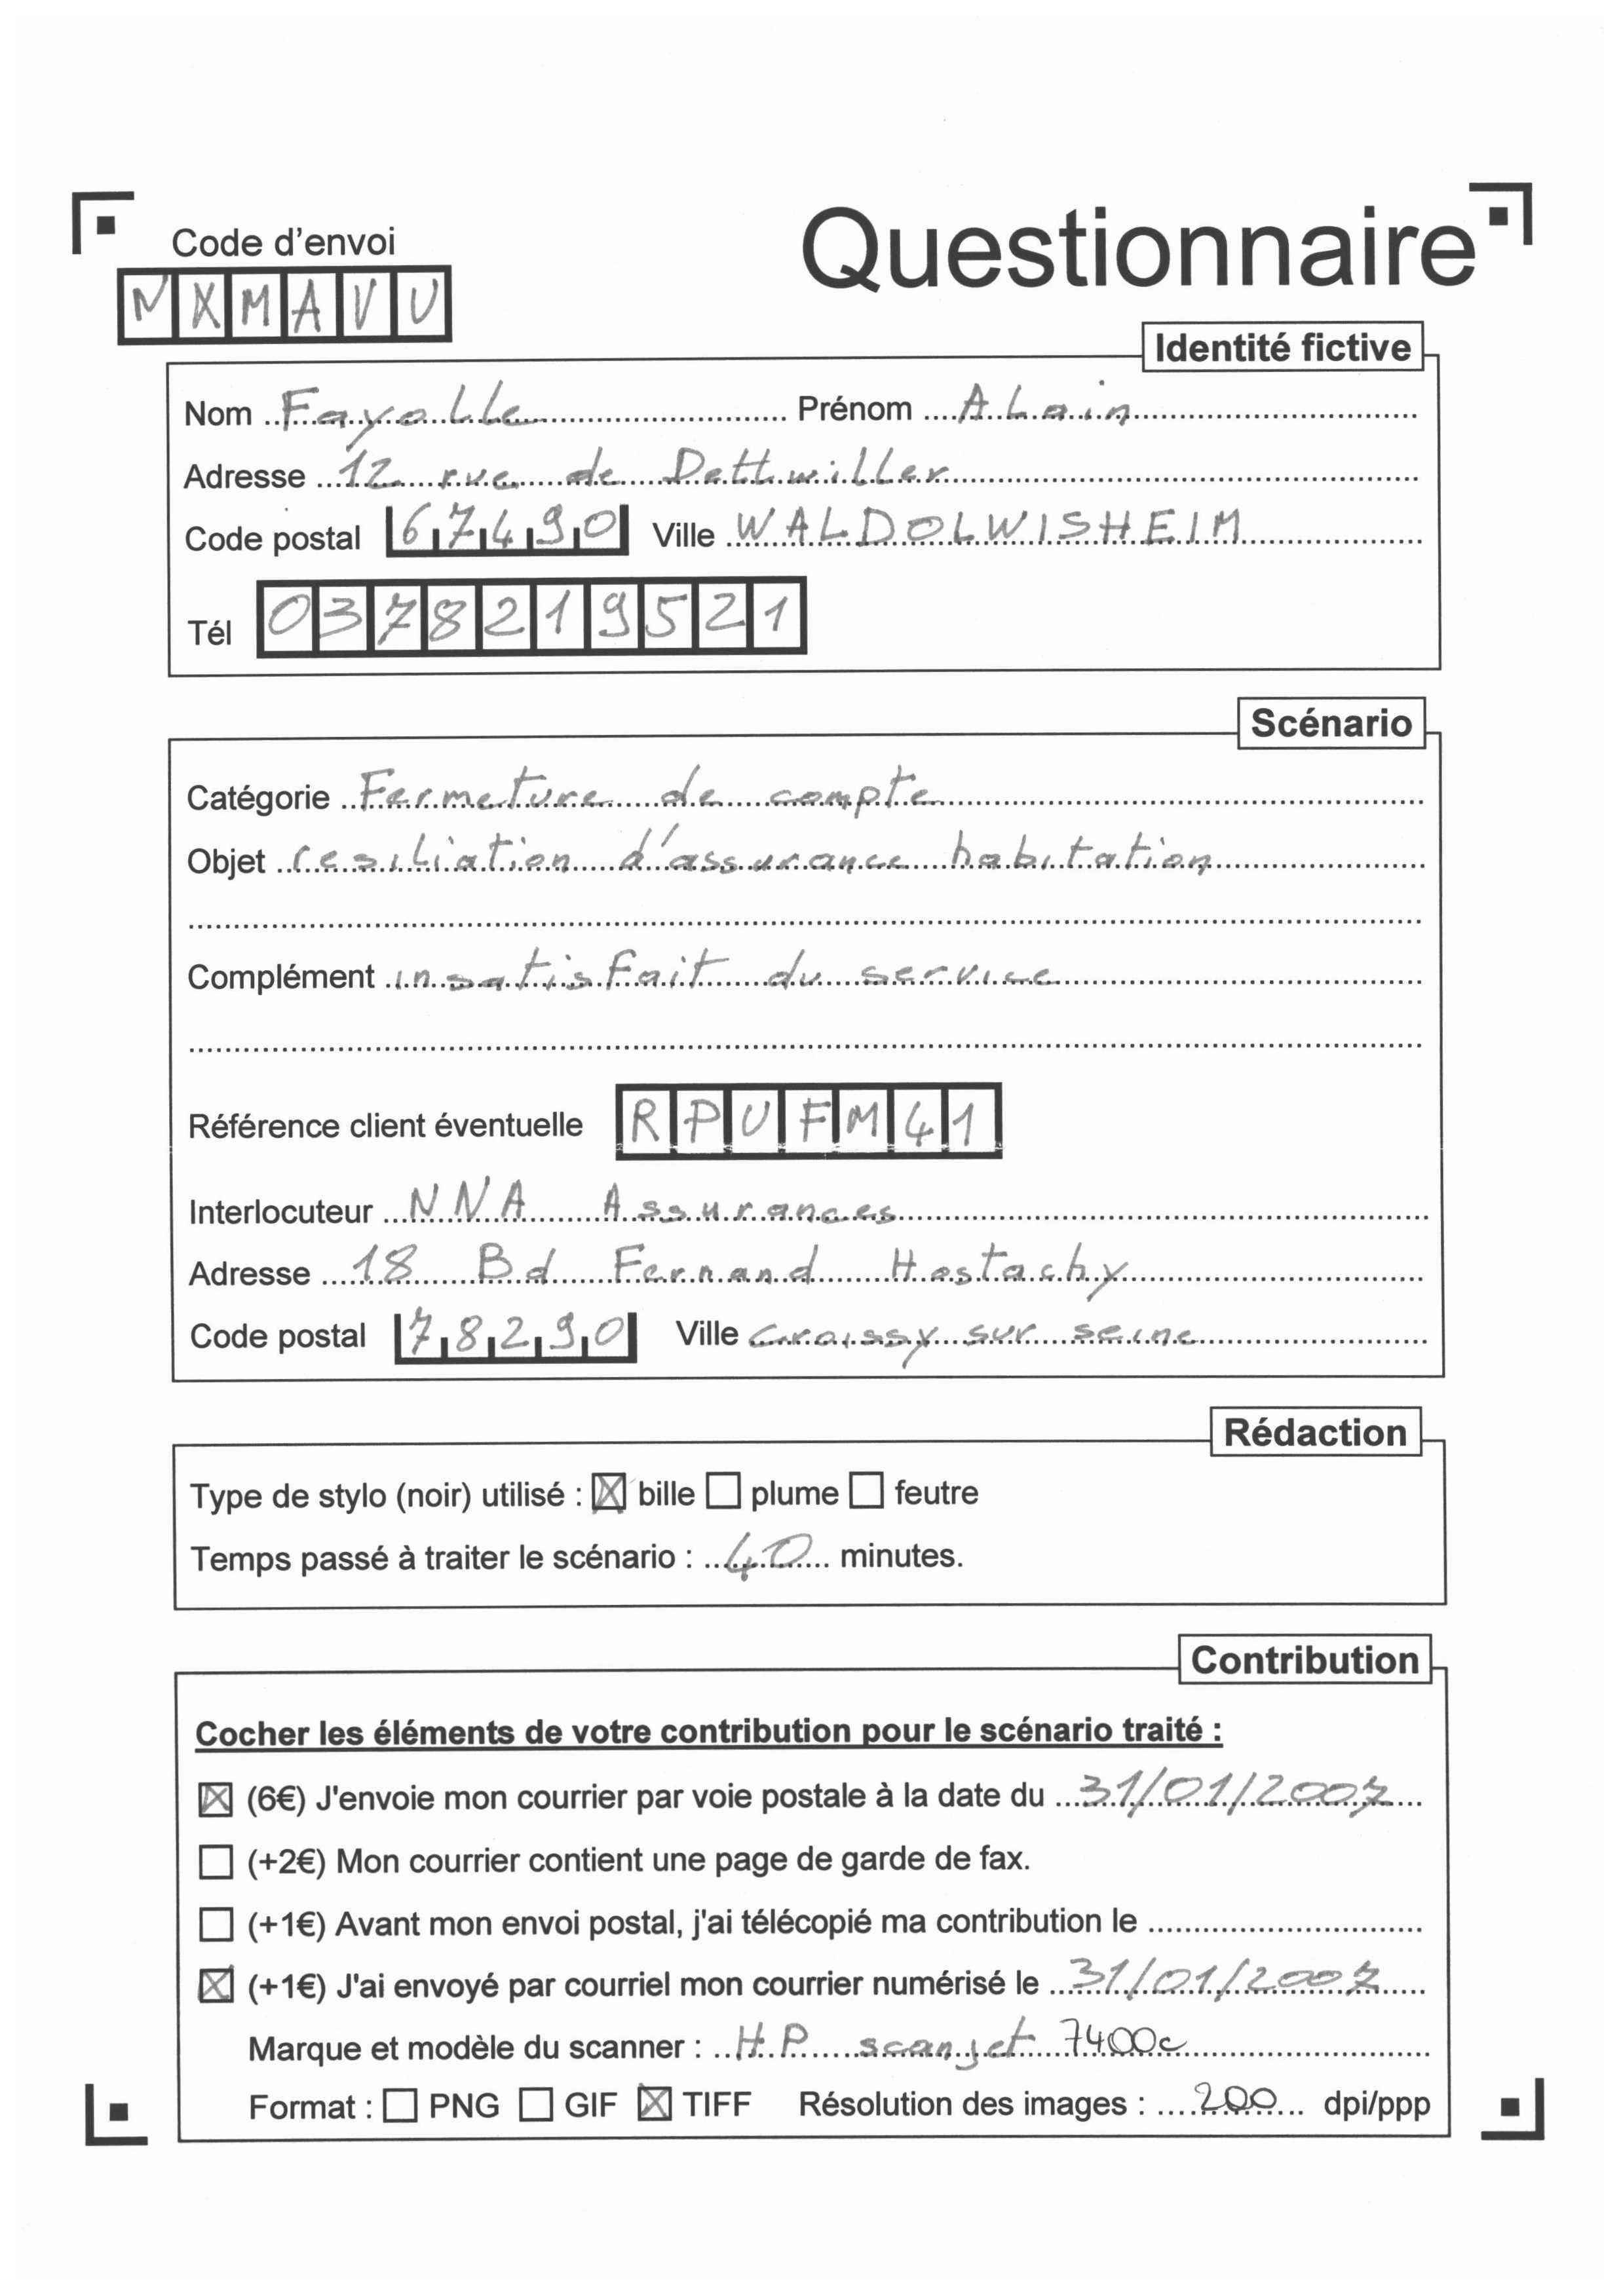 Questionnaire
Code d'envoi
NXMAVU
Identité fictive
Nom Fayolle Prénom Alain
Adresse 12 rue de Dettwiller
Code postal 67490 Ville WALDOLWISHEIM
Tél 0378219521
Scénario
Catégorie Fermeture de compte
Objet resiliation d'assurance habitation
Complément insatisfait du service
Référence client éventuelle RPUFM41
Interlocuteur NNA Assurances
Adresse 18 Bd Fernand Hostachy
Code postal 78290 Ville Croissy sur seine
Rédaction
Type de stylo (noir) utilisé : ☒ bille ☐ plume ☐ feutre
Temps passé à traiter le scénario : 40 minutes.
Contribution
Cocher les éléments de votre contribution pour le scénario traité :
☒ (6€) J'envoie mon courrier par voie postale à la date du 31/01/2007
☐ (+2€) Mon courrier contient une page de garde de fax.
☐ (+1€) Avant mon envoi postal, j'ai télécopié ma contribution le
☒ (+1€) J'ai envoyé par courriel mon courrier numérisé le 31/01/2007
Marque et modèle du scanner : HP scanjet 7400c
Format : ☐ PNG ☐ GIF ☒ TIFF Résolution des images : 200 dpi/ppp